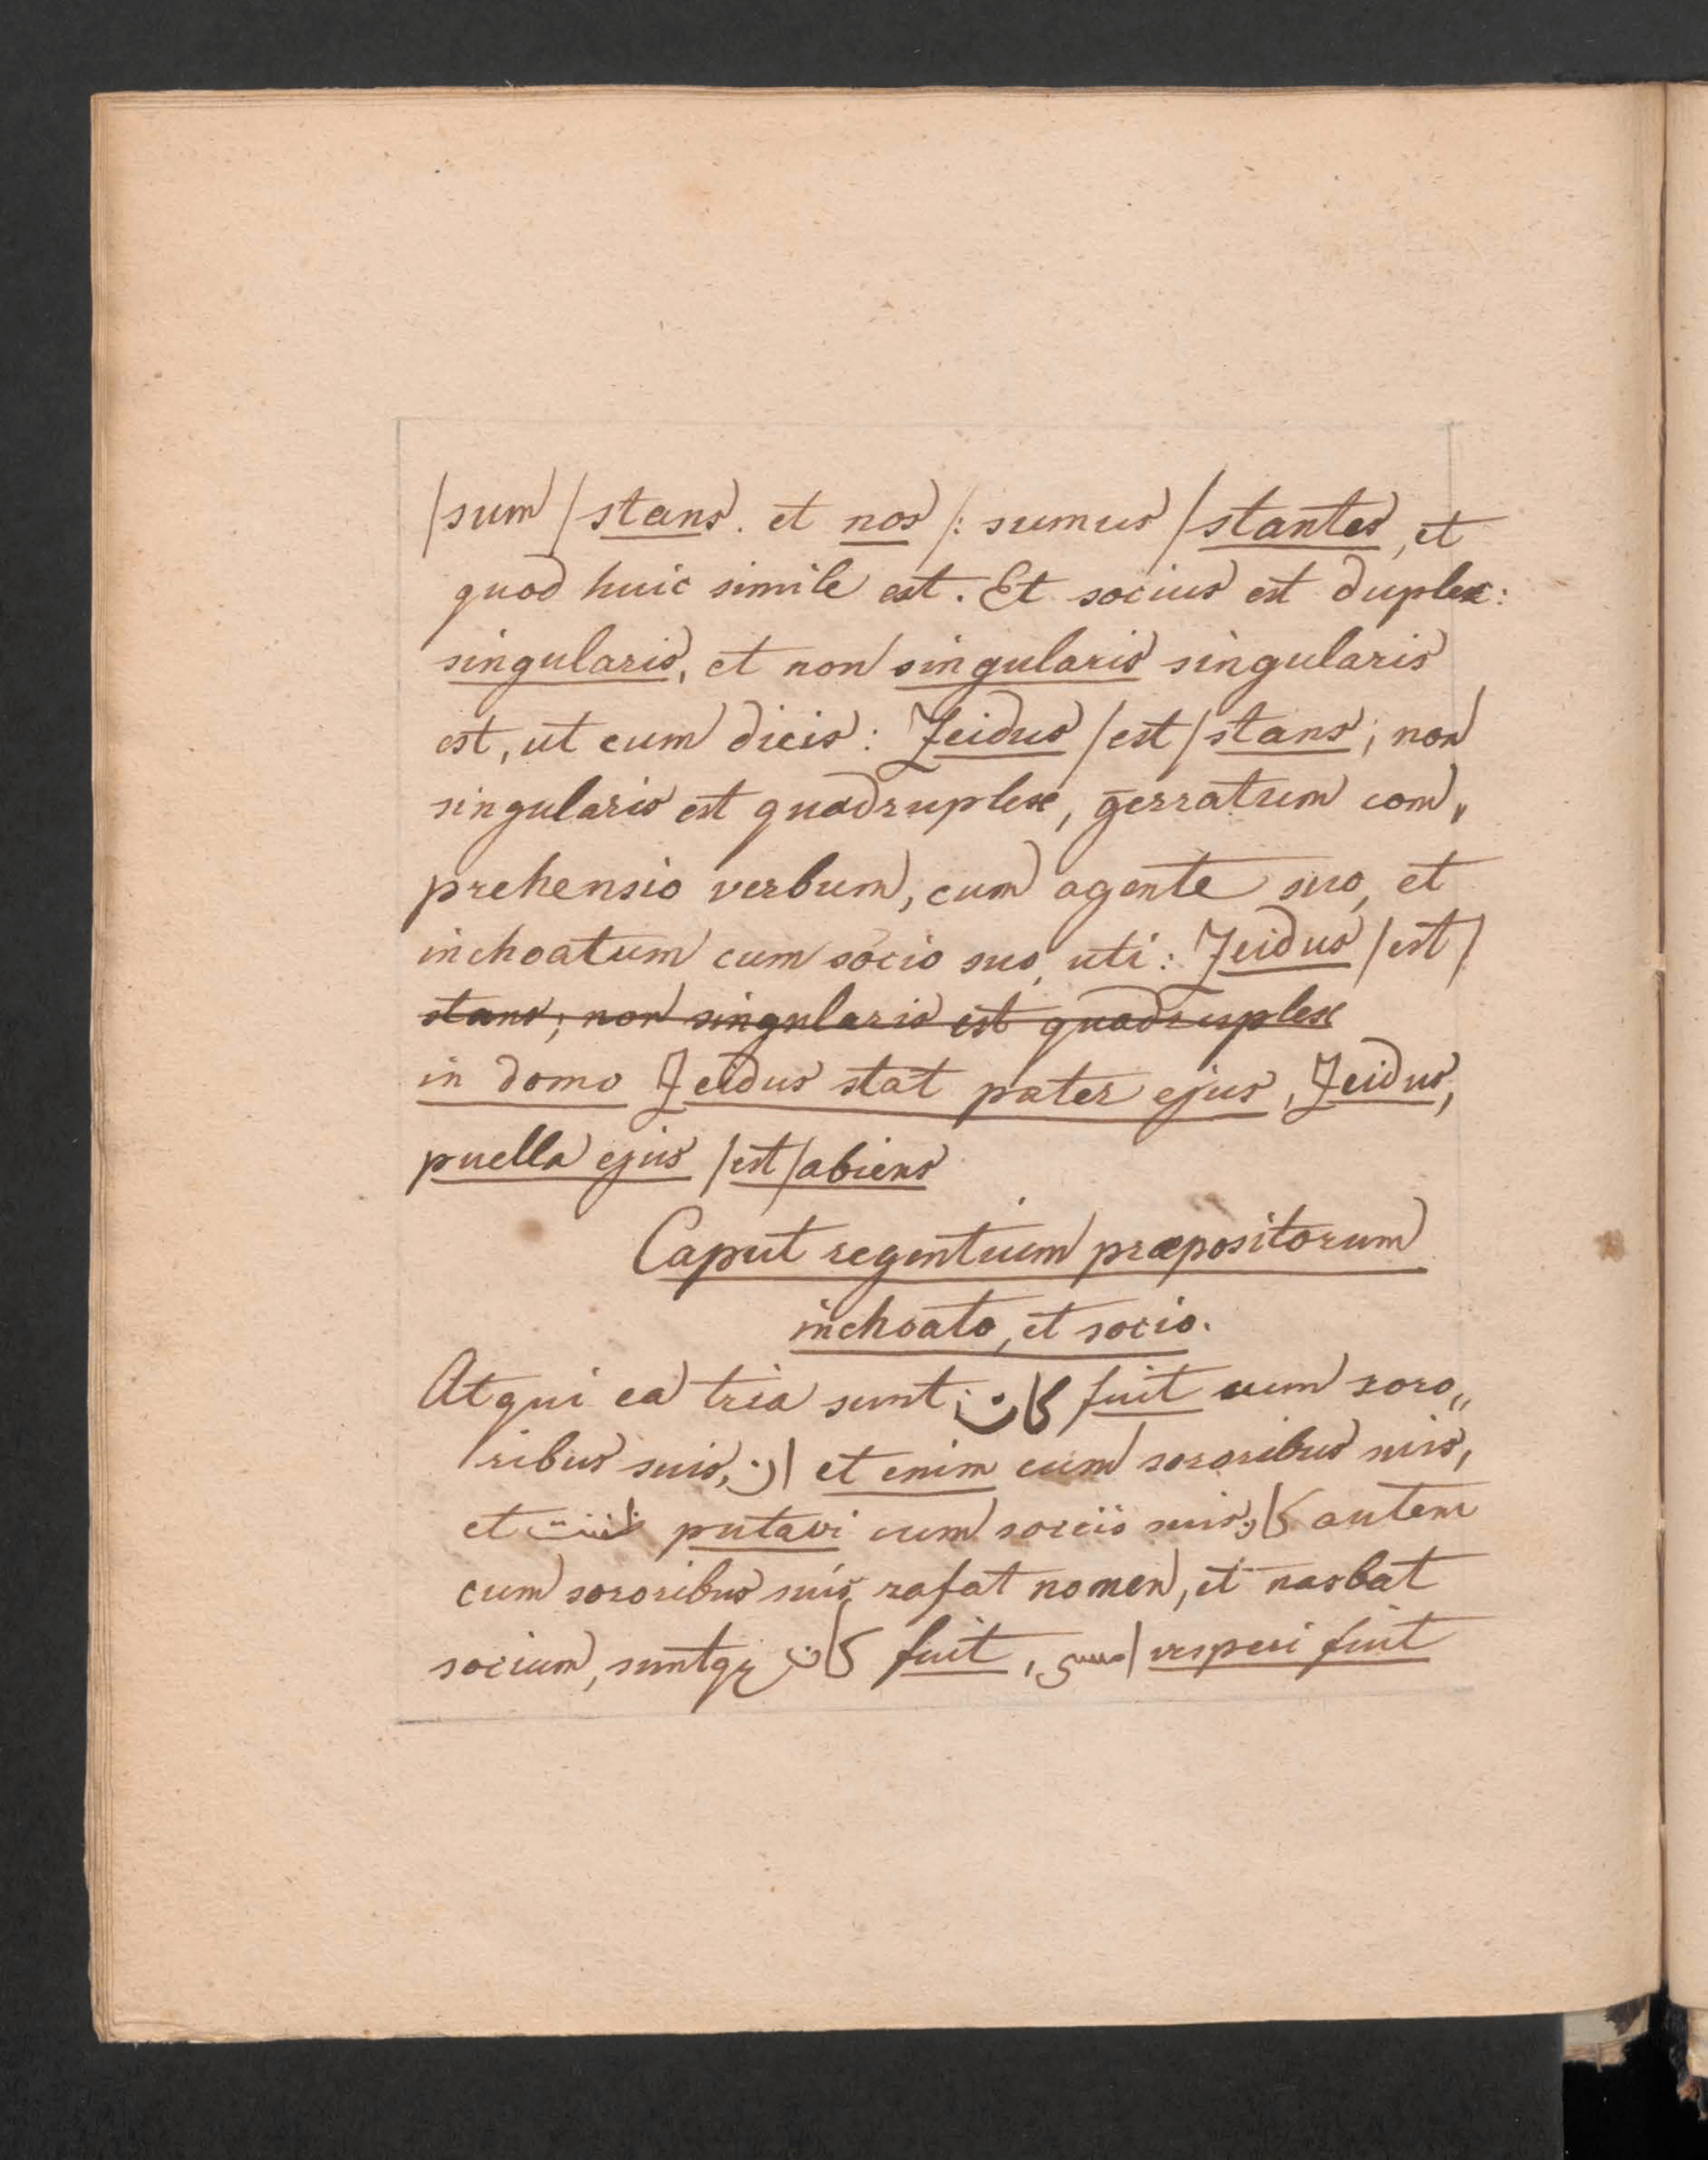 /sum /stans. et nos /: sumus /stantes, et
quod huic simile est. Et socius est duplex:
singularis, et non singularis singularis
est, ut cum dicis: Zeidus /est/ stans; non
singularis est quadruplex, gerratum com„
prehensio verbum, cum agente suo, et
inchoatum cum socio suo, uti: Zeidus /est/
stans; non singularis est quadruplex
in domo Zeidus stat pater ejus, Zeidus,
puella ejus /est/ abiens
Caput regentium præpositorum
inchoato, et socio.
Atqui ea tria sunt; كان fuit cum soro„
ribus suis, ان et enim cum sororibus suis,
et ظننت putavi cum sociis suis; كان autem
cum sororibus suis rafat nomen, et nasbat
socium, suntq; كان fuit, امسى vesperi fuit